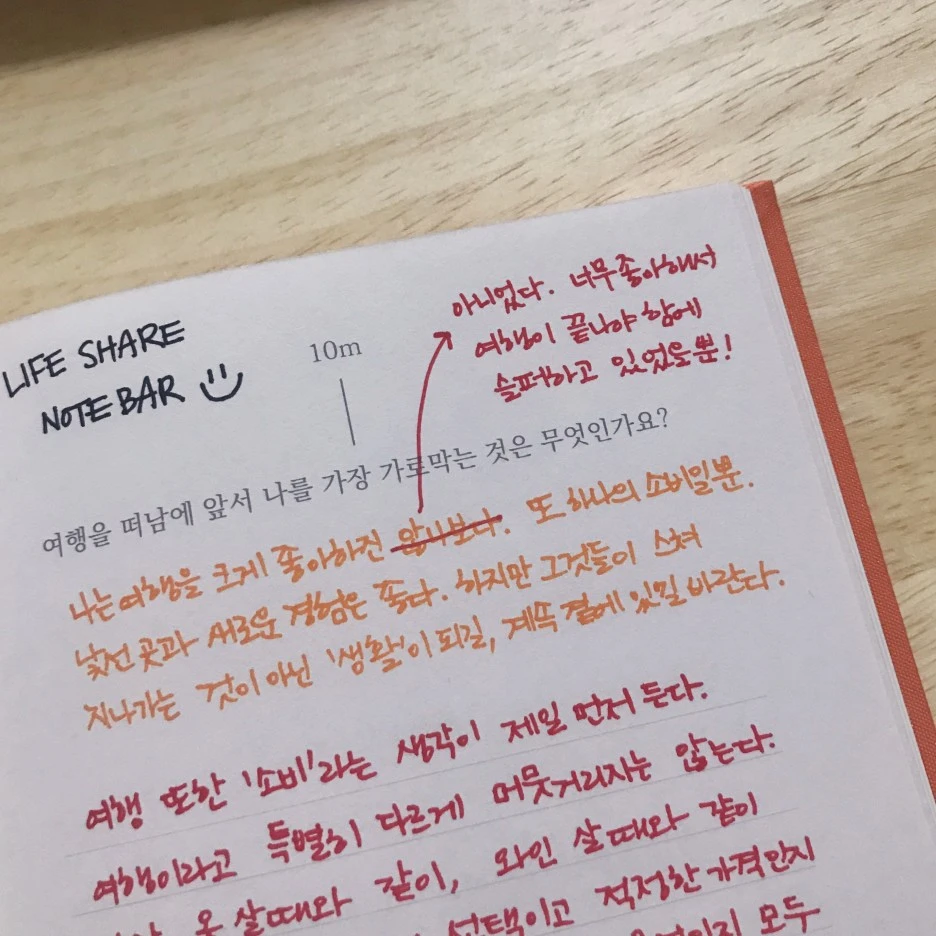 LIFE SHARE
NOTE BAR
10m
아니었다. 너무좋아해서
여행이 끝나야 함에
슬퍼하고 있었을뿐!
여행을 떠남에 앞서 나를 가장 가로막는 것은 무엇인가요?
나는 여행을 크게 좋아하진 않나보다. 또 하나의 소비일뿐.
낯선 곳과 새로운 경험은 좋다. 하지만 그것들이 스쳐
지나가는 것이 아닌 '생활'이 되길, 계속 곁에 있길 바란다.
여행 또한 '소비'라는 생각이 제일 먼저 든다.
여행이라고 특별히 다르게 머뭇거리지는 않는다.
옷 살때와 같이, 와인 살 때와 같이
선택이고 적정한 가격인지
모두